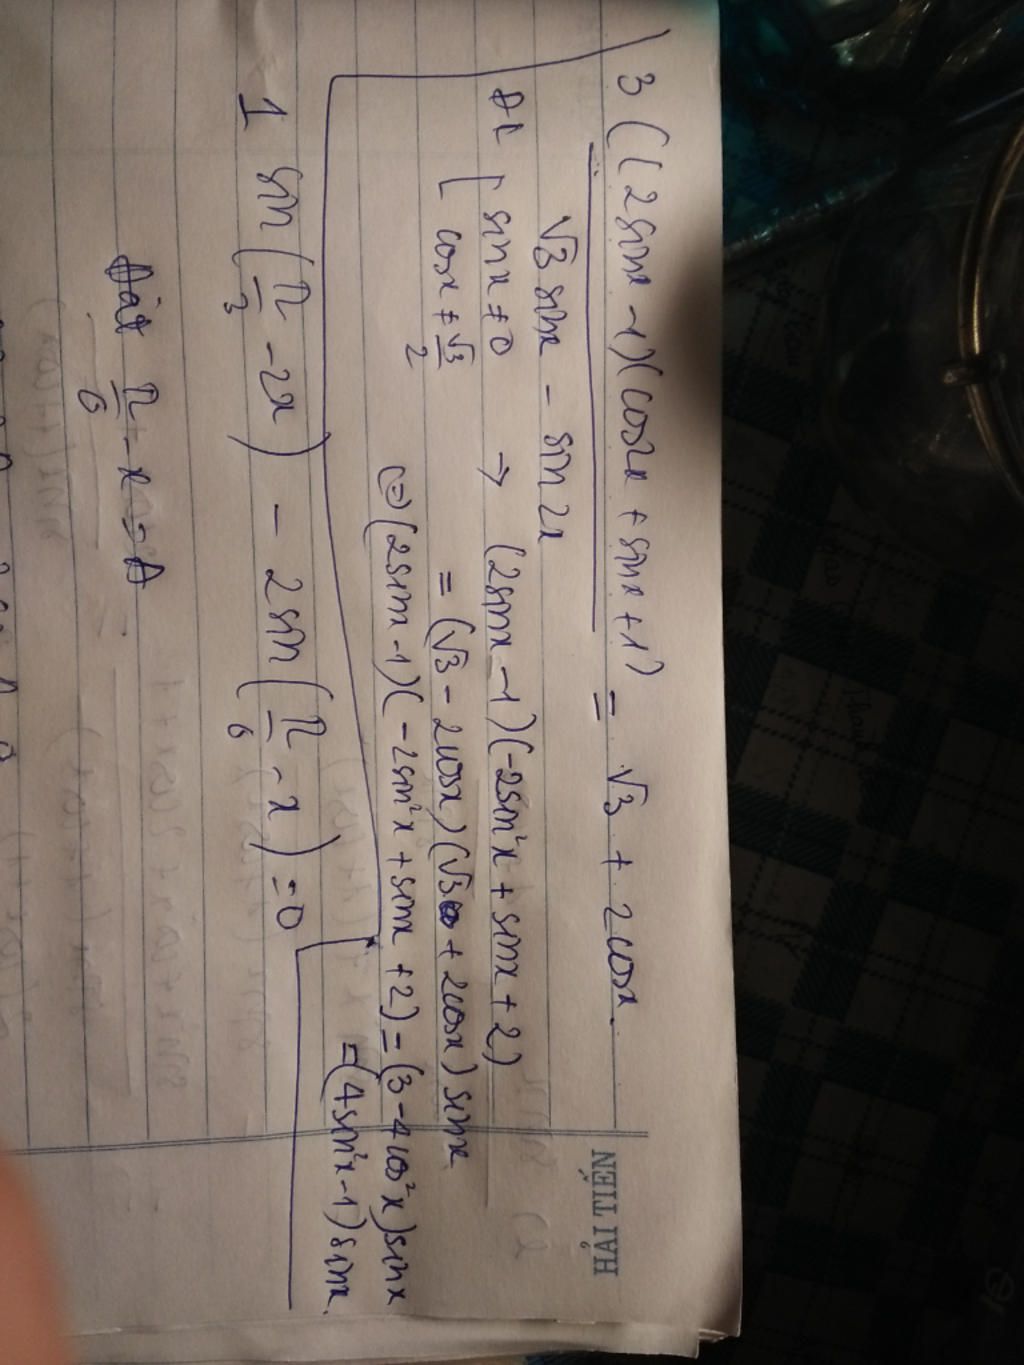 3 ((2sinx - 1)(cos2x + sinx + 1) = √3 + 2cosx.
√3 sinx - sin 2x
ĐK [ sinx ≠ 0 → (2sinx - 1)(-2sin²x + sinx + 2)
cosx ≠ √3/2 = (√3 - 2cosx)(√3 + 2cosx) sinx
(=) (2sinx - 1)(-2sin²x + sinx + 2) = (3 - 4cos²x)sinx
= (4sin²x - 1)sinx.
1 sin(π/3 - 2x) - 2sin(π/6 - x) = 0
Đặt π/6 - x = A
HẢI TIẾN